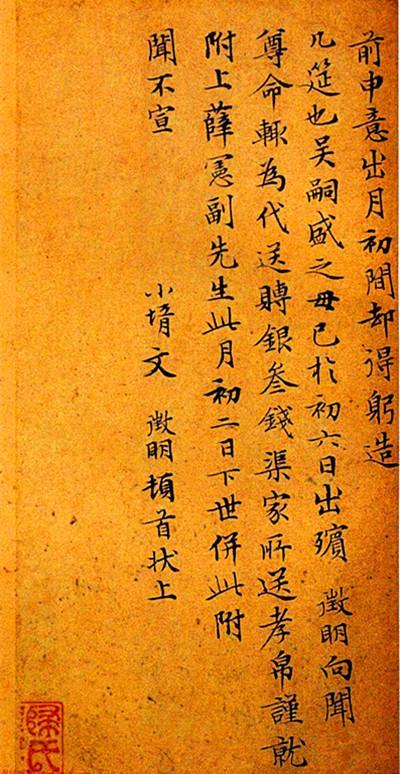 前申意出月初間却得躬造
几筵也吴嗣盛之母已於初六日出殯 徵明向聞
尊命輒為代送賻銀叁錢渠家所送孝帛謹就
附上薛憲副先生此月初二日下世併此附
聞不宣
小壻文 徵明頓首状上